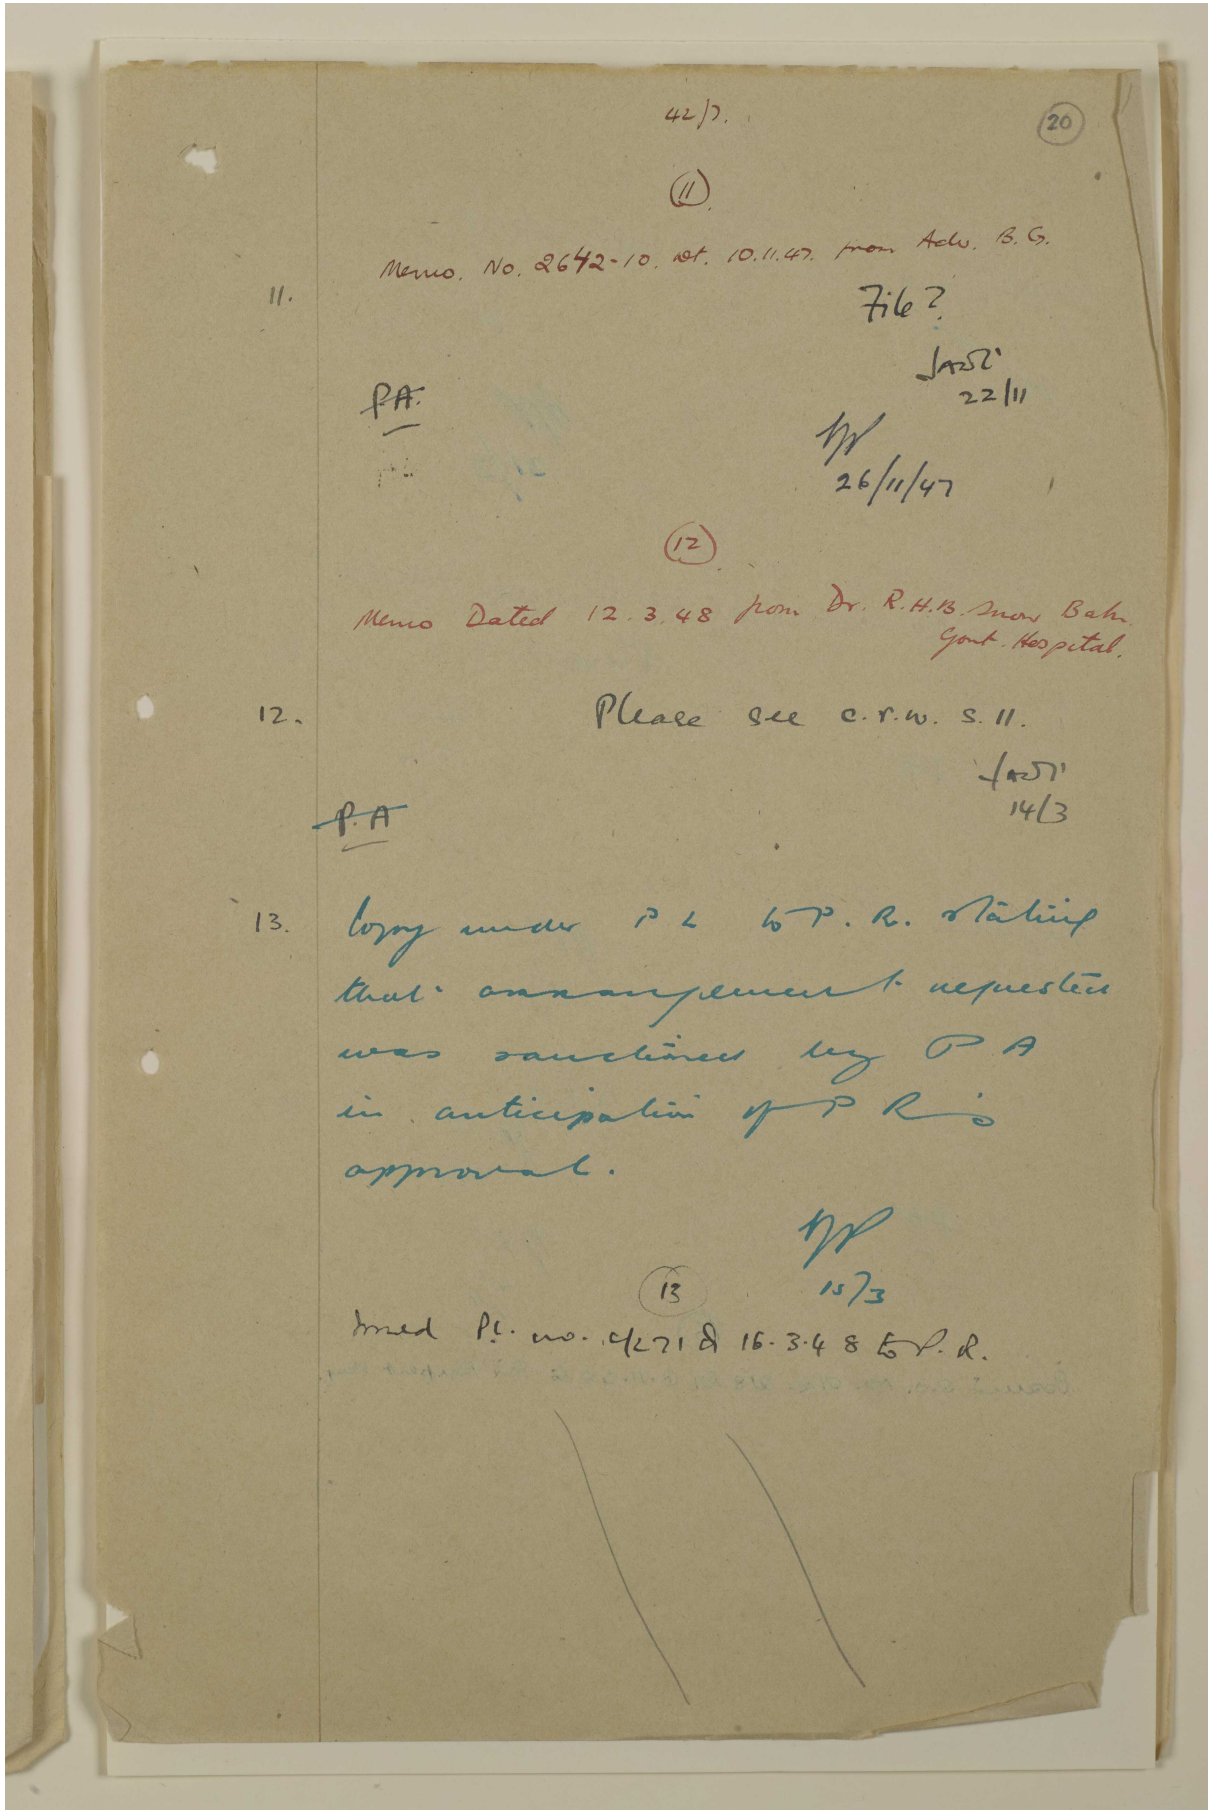 42/7.
20
11
Memo. No. 2642-10. dt. 10.11.47. from Adv. B.G.
11.
File?
22/11
P.A.
26/11/47
12
Memo Dated 12.3.48 from Dr. R.H.B. Snow Bah.
Govt. Hospital.
12.
Please see c.r.w. S. 11.
14/3
P.A
13.
Copy under P L to P. R. stating
that arrangement requested
was sanctioned by P A
in anticipation of P R's
approval.
15/3
13
Issued PL. no. c/L71 d 16.3.48 to P.R.